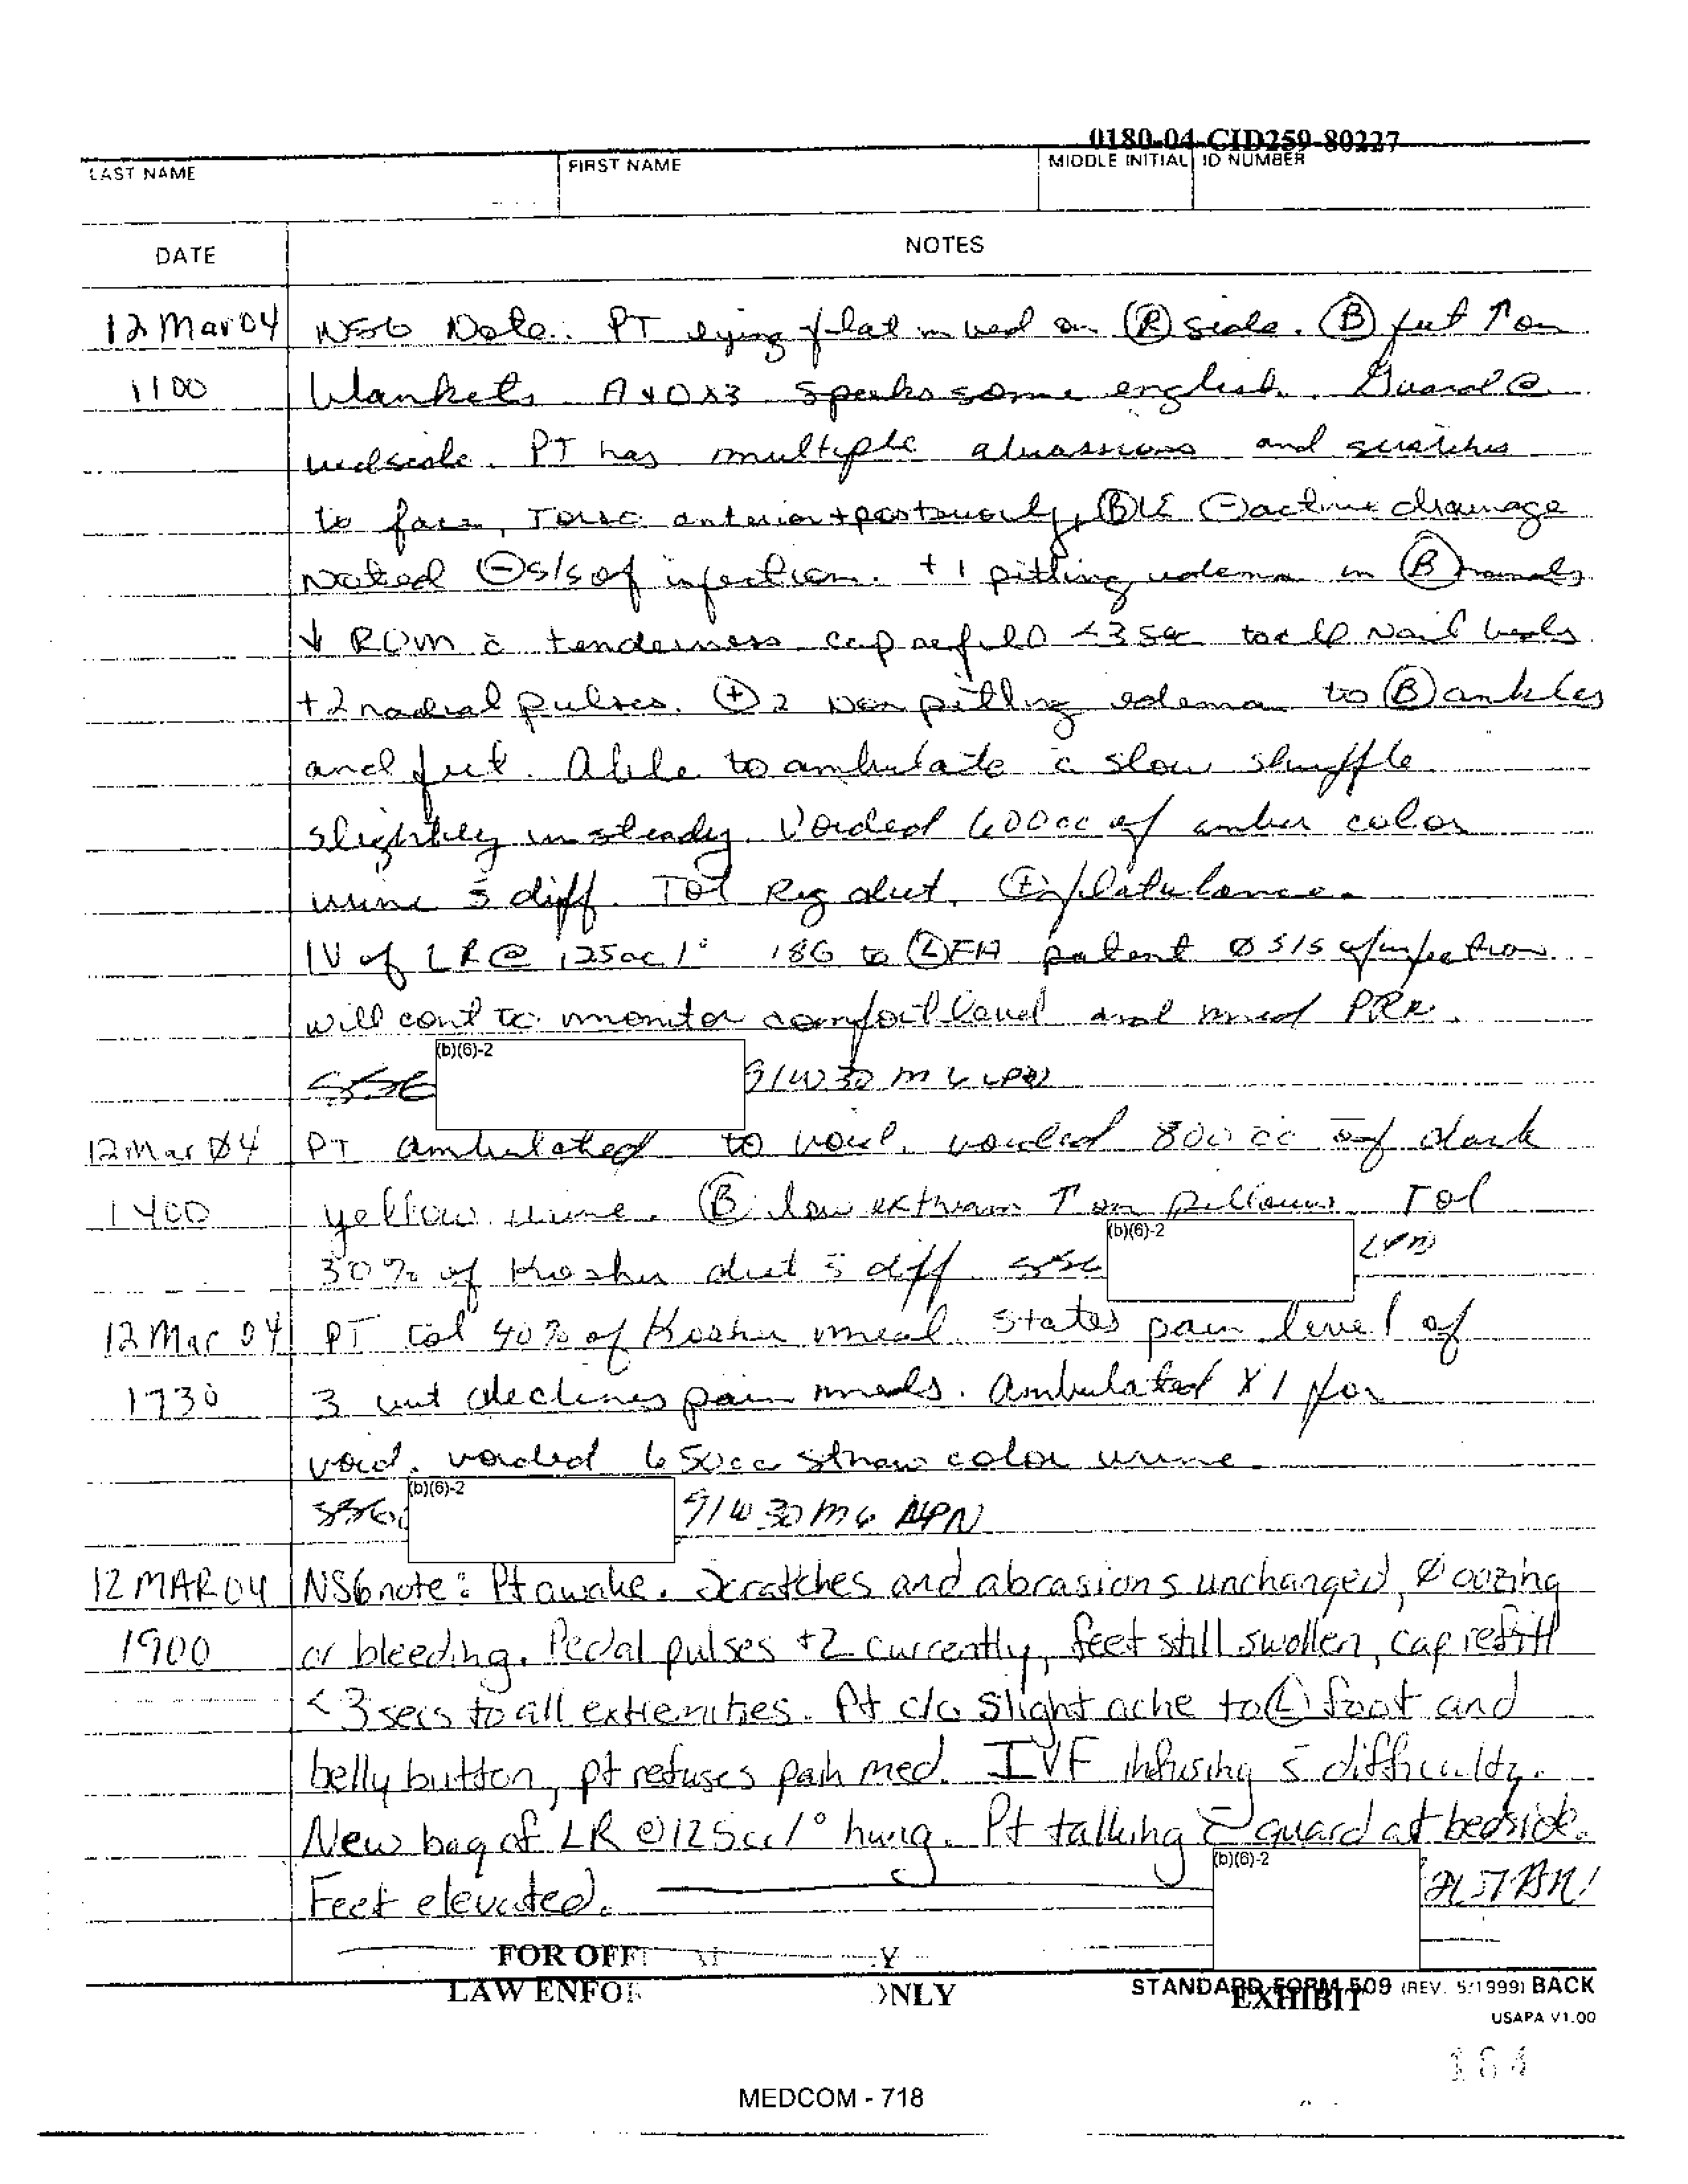 0180-04-CID259-80227
LAST NAME FIRST NAME MIDDLE INITIAL ID NUMBER
DATE NOTES
12 Mar 04 NSG Note: PT lying flat in bed on Ⓡ side. Ⓑ feet ↑ on
1100 blankets A+Ox3 speaks some english. Guard @
bedside. PT has multiple abrassions and scratches
to face, Torso anterior + posteriorly, Ⓑ LE ⊖ active drainage
Noted ⊖ s/s of infection. +1 pitting edema in Ⓑ hands
↓ ROM c̄ tenderness cap refill <3 sec to all nail beds
+2 radial pulses. ⊕2 Non pitting edema to Ⓑ ankles
and feet. Able to ambulate c̄ slow shuffle
slightly unsteady. Voided 600cc of amber color
urine s̄ diff. Tol Reg diet. ⊕ flatulance.
IV of LR @ 125cc/° 18G to Ⓛ FA patent Ø s/s of infection
will cont to monitor comfort level and med PRN.
SSG (b)(6)-2 91W30 M6 LPN
12 Mar 04 PT ambulated to void. voided 800cc of dark
1400 yellow urine. Ⓑ low extrem ↑ on pillows. Tol
30% of Kosher diet s̄ diff. SSG (b)(6)-2 LPN
12 Mar 04 PT tol 40% of Kosher meal. States pain level of
1730 3 but declines pain meds. Ambulated x1 for
void. voided 650cc straw color urine.
SSG (b)(6)-2 91W30M6 LPN
12 MAR 04 NSG note: Pt awake. Scratches and abrasions unchanged, Ø oozing
1900 or bleeding. Pedal pulses +2 currently, feet still swollen, cap refill
<3 secs to all extremities. Pt c/o slight ache to Ⓛ foot and
belly button, pt refuses pain med. IVF infusing s̄ difficulty.
New bag of LR @125cc/° hung. Pt talking c̄ guard at bedside.
Feet elevated. (b)(6)-2
FOR OFF Y
LAW ENFOR ONLY
STANDARD FORM 509 (REV. 5/1999) BACK
EXHIBIT
USAPA V1.00
164
MEDCOM - 718